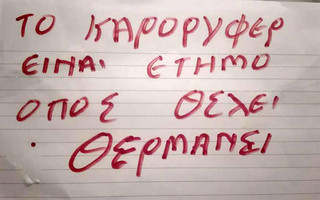 ΤΟ ΚΑΡΟΡΥΦΕΡ
ΕΙΝΑΙ ΕΤΗΜΟ
ΟΠΟΣ ΘΕΛΕΙ
· ΘΕΡΜΑΝΣΙ